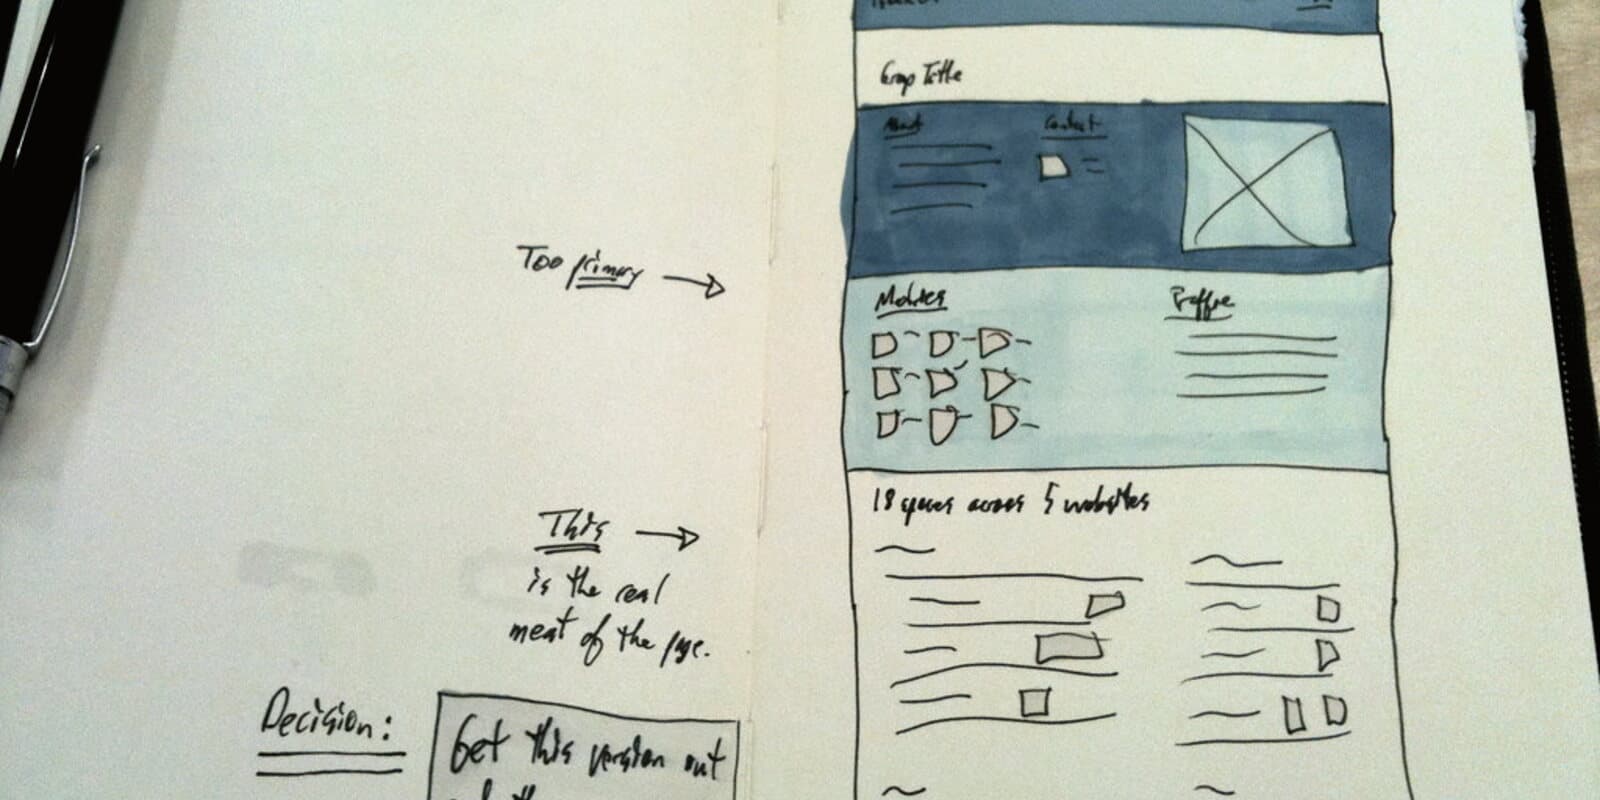 Title
About
Contact
Too primary
Metrics
Traffic
18 spaces across 5 websites
This
is the real
meat of the page.
Decision:
Get this version out